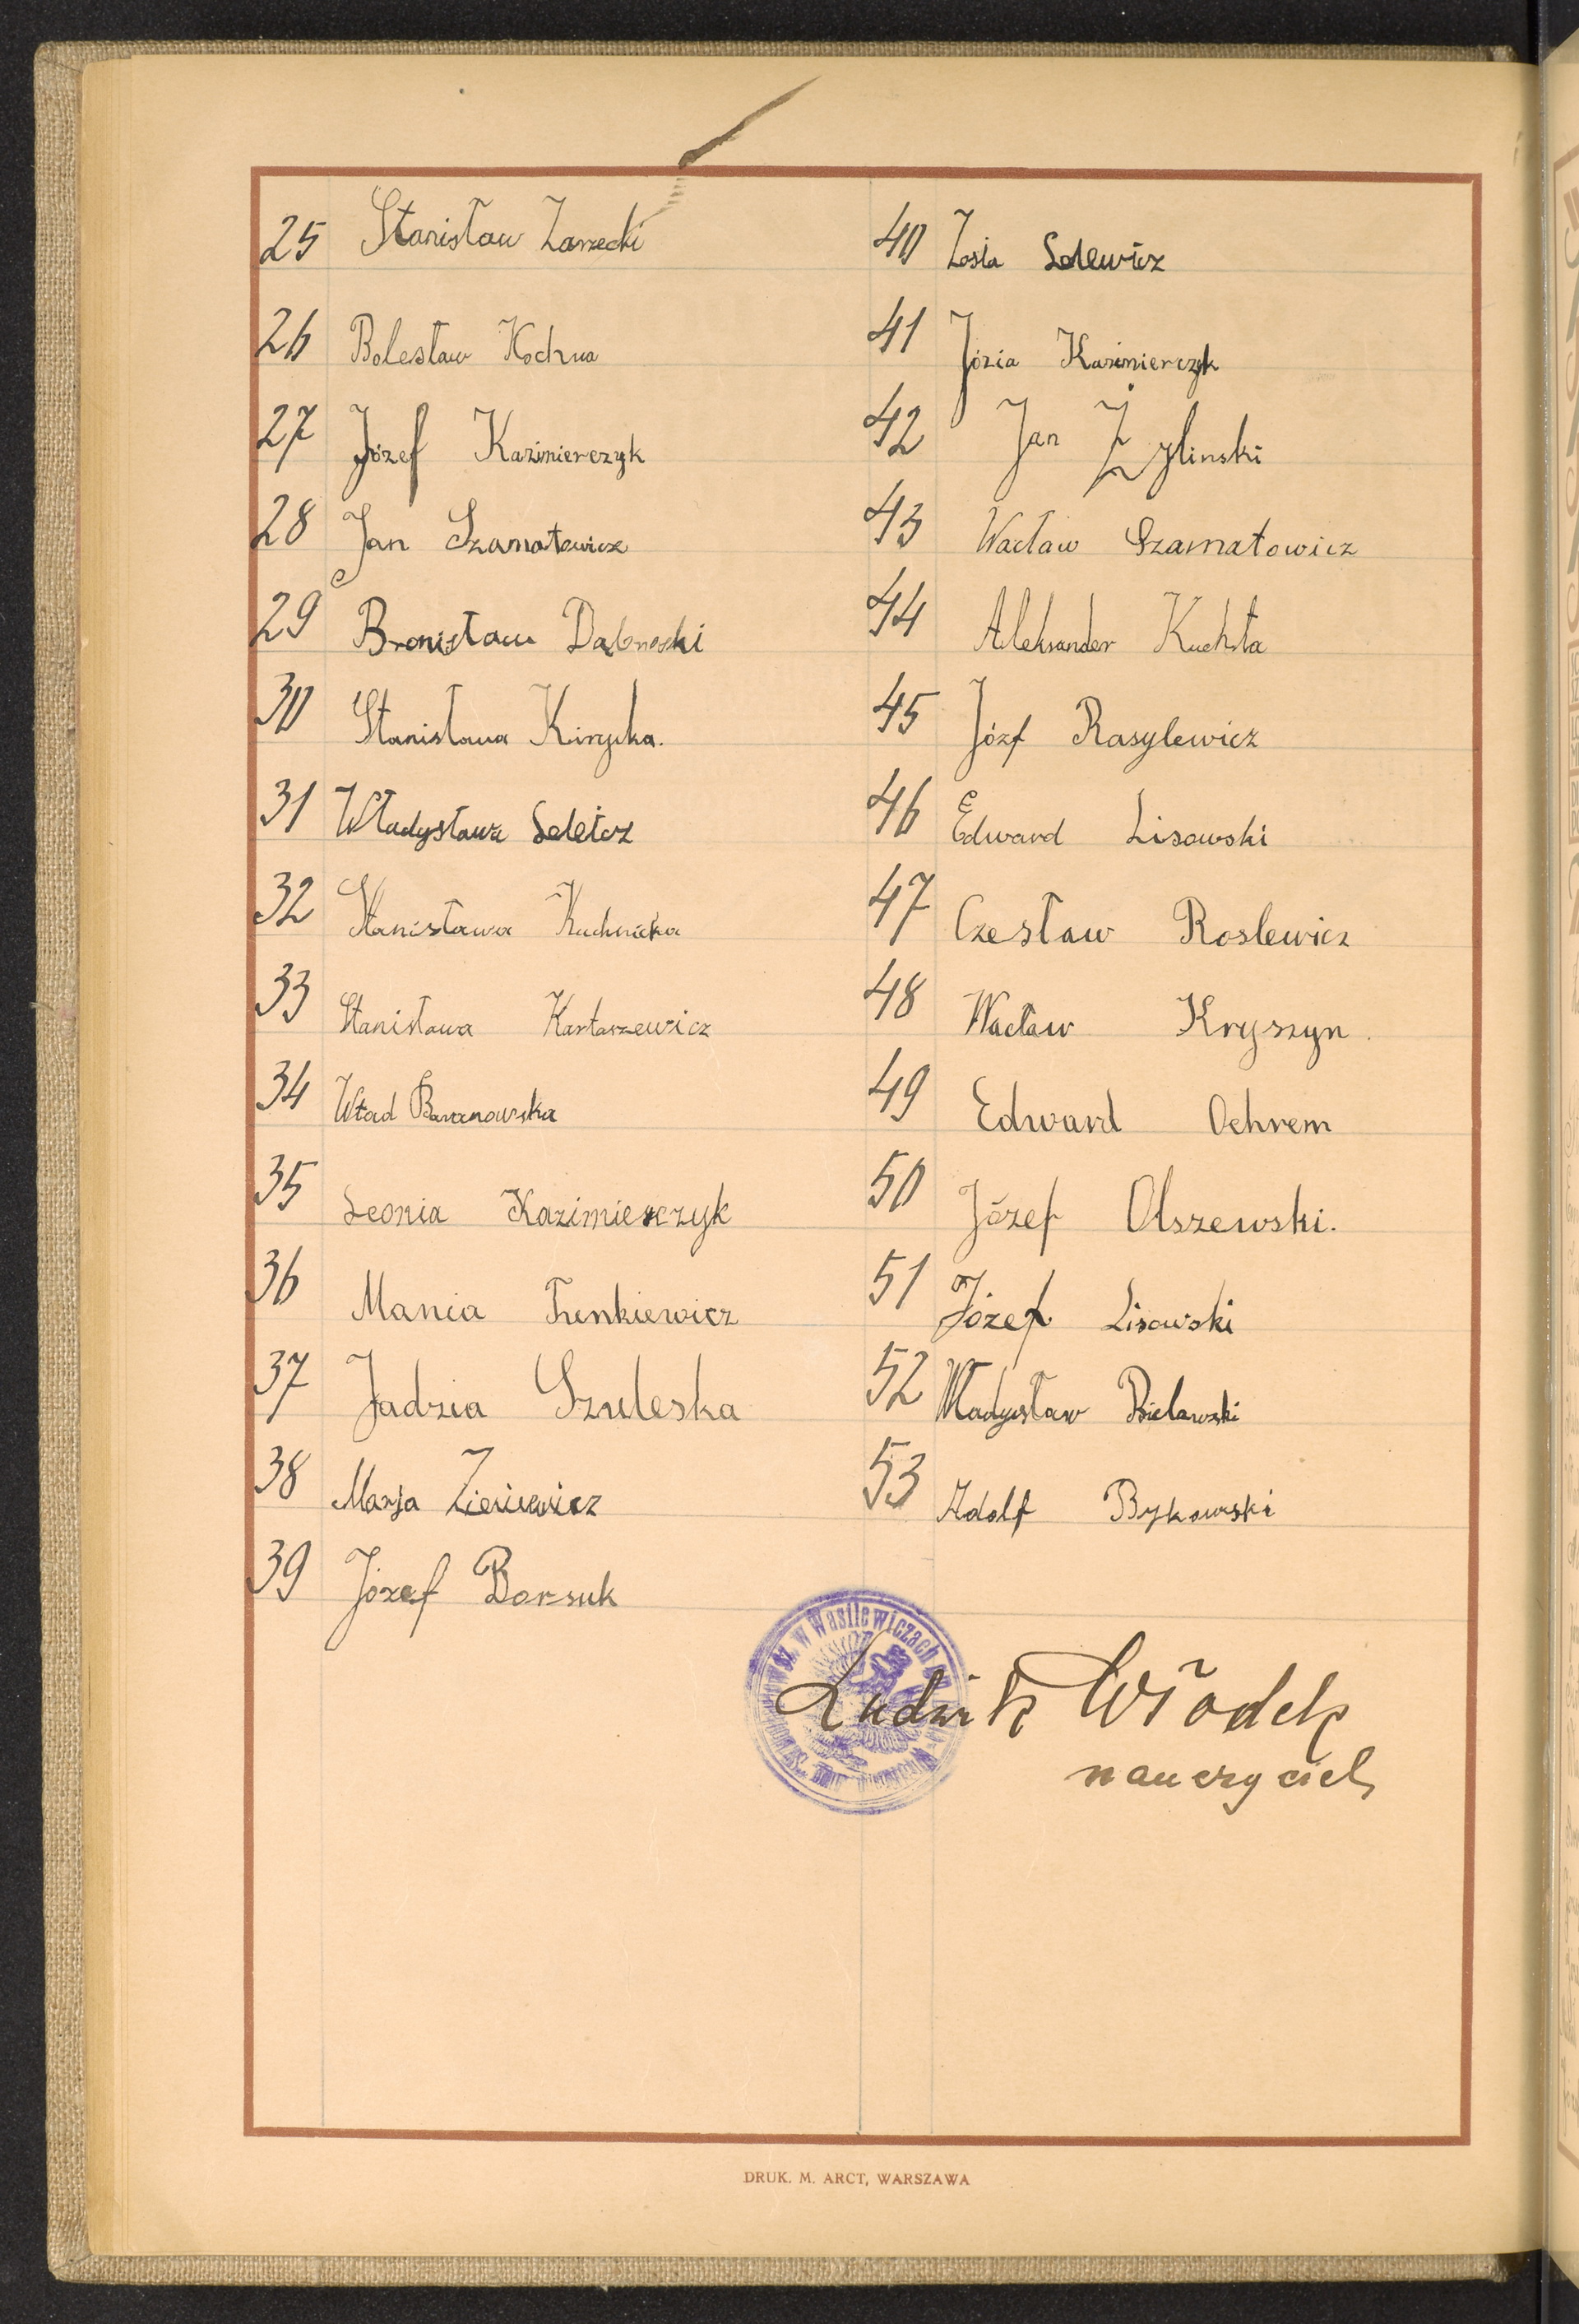 25 Stanisław Zarzecki
26 Bolesław Kochna
27 Józef Kazimierczyk
28 Jan Szamatowicz
29 Bronisław Dąbrowski
30 Stanisława Kirycka.
31 Władysława
32 Stanisława Kuchnicka
33 Stanisława Kartaszewicz
34 Wład Baranowska
35 Leonia Kazimierczyk
36 Mania Funkiewicz
37 Jadzia Szuleska
38 Marja Zieniewicz
39 Józef Borsuk
40 Zosia Solewicz
41 Józia Kazimierczyk
42 Jan Żylinski
43 Wacław Szamatowicz
44 Aleksander Kuchta
45 Józf Rasylewicz
46 Edward Lisowski
47 Czesław Roslewicz
48 Wacław Kryszyn.
49 Edward Ochrem
50 Józef Olszewski.
51 Józef Lisowski
52 Władysław Bielawski
53 Adolf Bykowski
w Wasilewiczach
Ludwik Włodek
nauczyciel
DRUK. M. ARCT, WARSZAWA